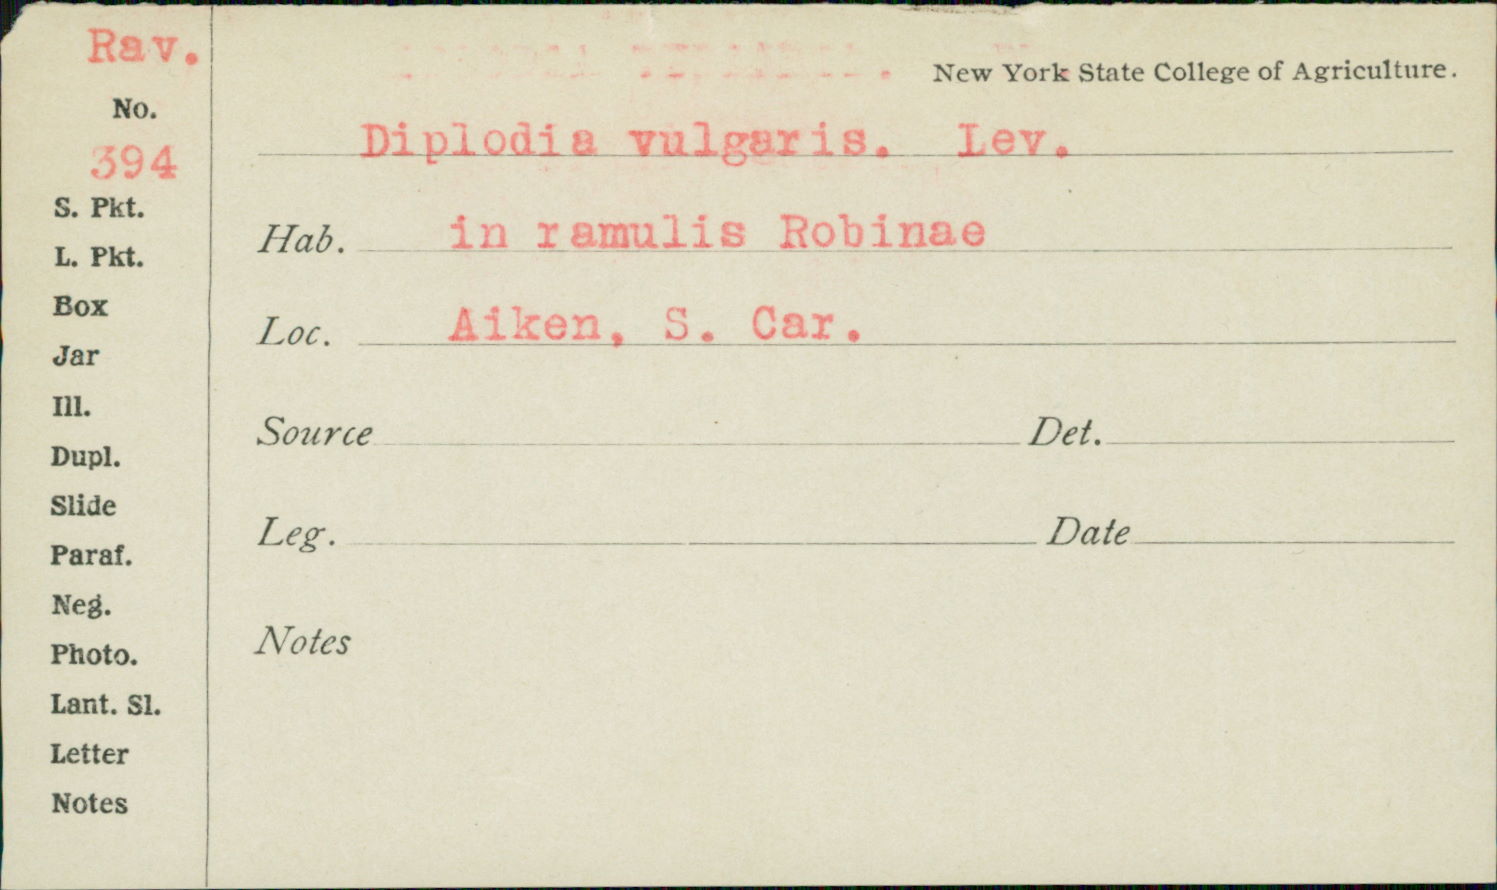 Rav.
New York State College of Agriculture.
No.
394
Diplodia vulgaris. Lev.
S. Pkt.
Hab. in ramulis Robinae
L. Pkt.
Box
Loc. Aiken, S. Car.
Jar
Ill.
Source Det.
Dupl.
Slide
Leg. Date
Paraf.
Neg.
Notes
Photo.
Lant. Sl.
Letter
Notes